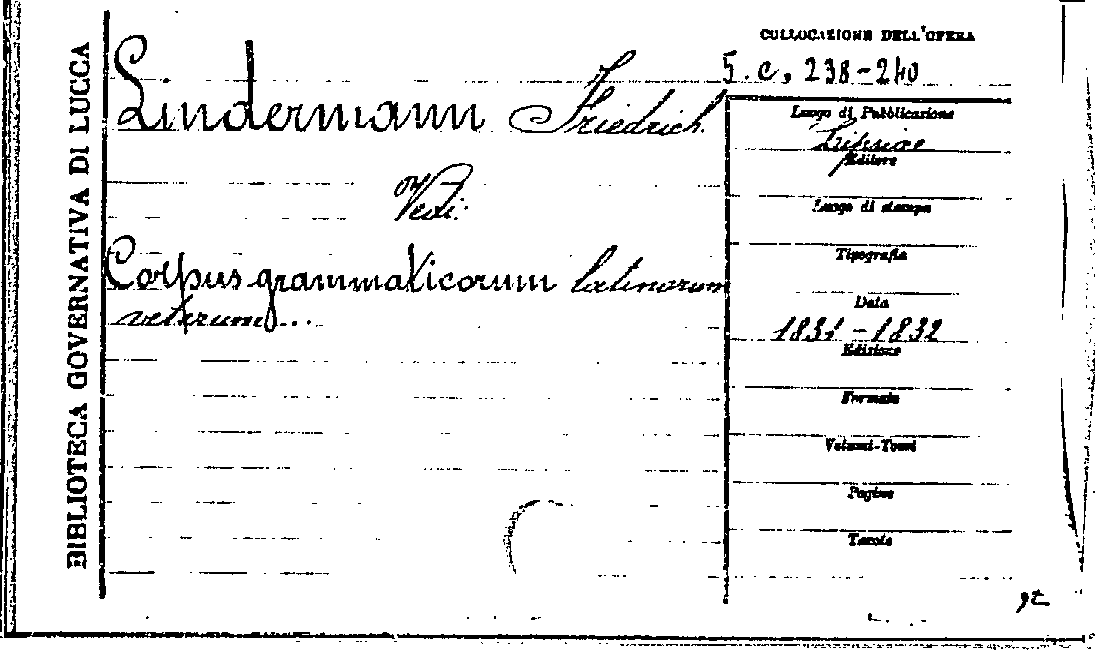 BIBLIOTECA GOVERNATIVA DI LUCCA
COLLOCAZIONE DELL'OPERA
5. c, 238-240
Lindermann Friedrich.
Vedi:
Corpus grammaticorum latinorum
veterum...
Luogo di Pubblicazione
Lipsiae
Editore
Luogo di stampa
Tipografia
Data
1831-1832
Edizione
Formato
Volumi-Tomi
Pagine
Tavole